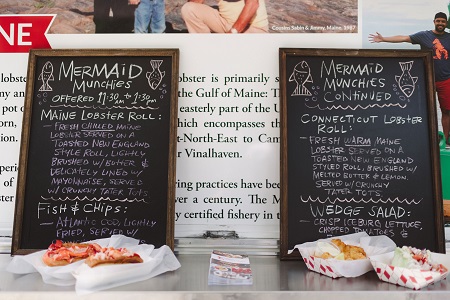 NE
Cousins Sabin & Jimmy, Maine, 1987
lobster
pot o
orn,
e
lobster is primarily s
the Gulf of Maine: T
easterly part of the U
which encompasses th
t-North-East to Can
Vinalhaven.
ring practices have be
ver a century. The M
y certified fishery in t
MERMAID
MUNCHIES
OFFERED 11:30AM TO 1:30PM
MAINE LOBSTER ROLL:
- FRESH CHILLED MAINE
LOBSTER SERVED ON A
TOASTED NEW ENGLAND
STYLE ROLL, LIGHTLY
BRUSHED W/ BUTTER &
DELICATELY LINED W/
MAYONNAISE, SERVED
W/ CRUNCHY TATER TOTS
FISH & CHIPS:
- ATLANTIC COD LIGHTLY
FRIED, SERVED W/
MERMAID
MUNCHIES
CONTINUED
CONNECTICUT LOBSTER
ROLL:
- FRESH WARM MAINE
LOBSTER SERVED ON A
TOASTED NEW ENGLAND
STYLED ROLL, BRUSHED W/
MELTED BUTTER & LEMON,
SERVED W/ CRUNCHY
TATER TOTS
WEDGE SALAD:
- CRISP ICEBURG LETTUCE,
CHOPPED TOMATOES